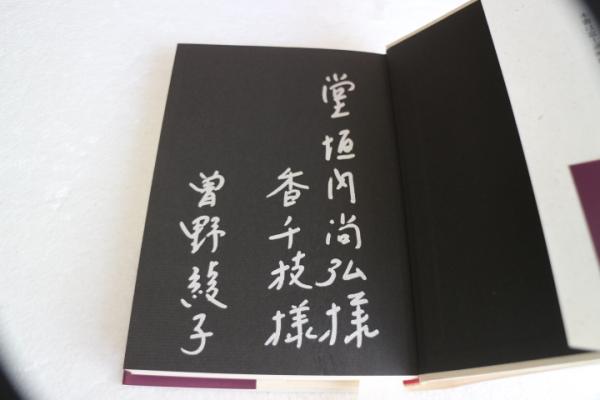 堂垣内尚弘様
香千枝様
曽野綾子